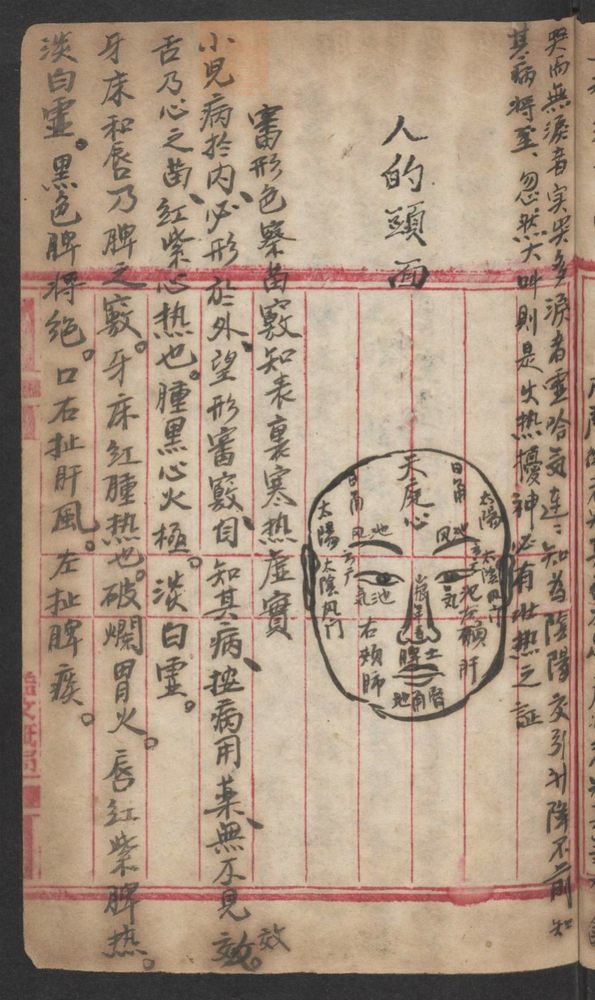 哭而無淚者实哭多淚者虛哈気連連知為陰陽交引升降不前知
其病将至、忽然大叫則是火热擾神必有壮热之証
人的頭面
審形色察苗竅知表裏寒热虛實
小児病於内、必形於外、望形審竅、自知其病、按病用薬、無不見效。
效
舌乃心之苗、紅紫心热也。腫黑心火極。淡白虛。
牙床和唇乃脾之竅。牙床紅腫热也。破爛胃火。唇紅紫脾热。
淡白虛。黑色脾将绝。口右扯肝風。左扯脾痰。
天庭心
日角
太陽
風池
太陰
風门
気池
左頰肝
山根
年壽
準
土
脾
地角腎
日角
風池
太陽
太陰
風门
気池
右頰肺